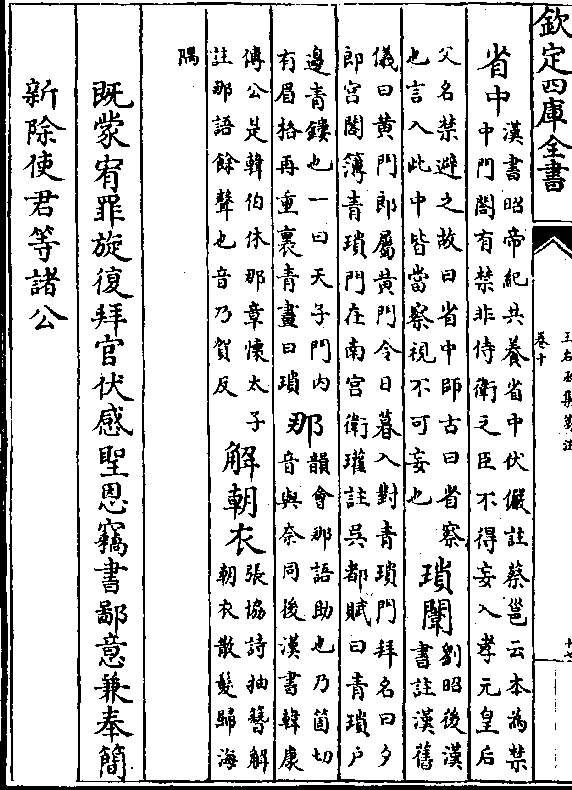 欽定四庫全書
王右丞集箋注
卷十
省中
漢書昭帝紀共養省中伏儼註蔡邕云本為禁
中門閤有禁非侍衛之臣不得妄入孝元皇后
父名禁避之故曰省中師古曰省察
也言入此中皆當察視不可妄也
瑣闈
劉昭後漢
書註漢舊
儀曰黄門郎屬黄門令日暮入對青瑣門拜名曰夕
郎宫閣簿青瑣門在南宫衛瓘註吳都賦曰青瑣户
邊青鏤也一曰天子門内
有眉格再重裏青畫曰瑣
那
韻會那語助也乃箇切
音與奈同後漢書韓康
傳公是韓伯休那章懷太子
註那語餘聲也音乃賀反
解朝衣
張協詩抽簪解
朝衣散髮歸海
隅
既蒙宥罪旋復拜官伏感聖恩竊書鄙意兼奉簡
新除使君等諸公